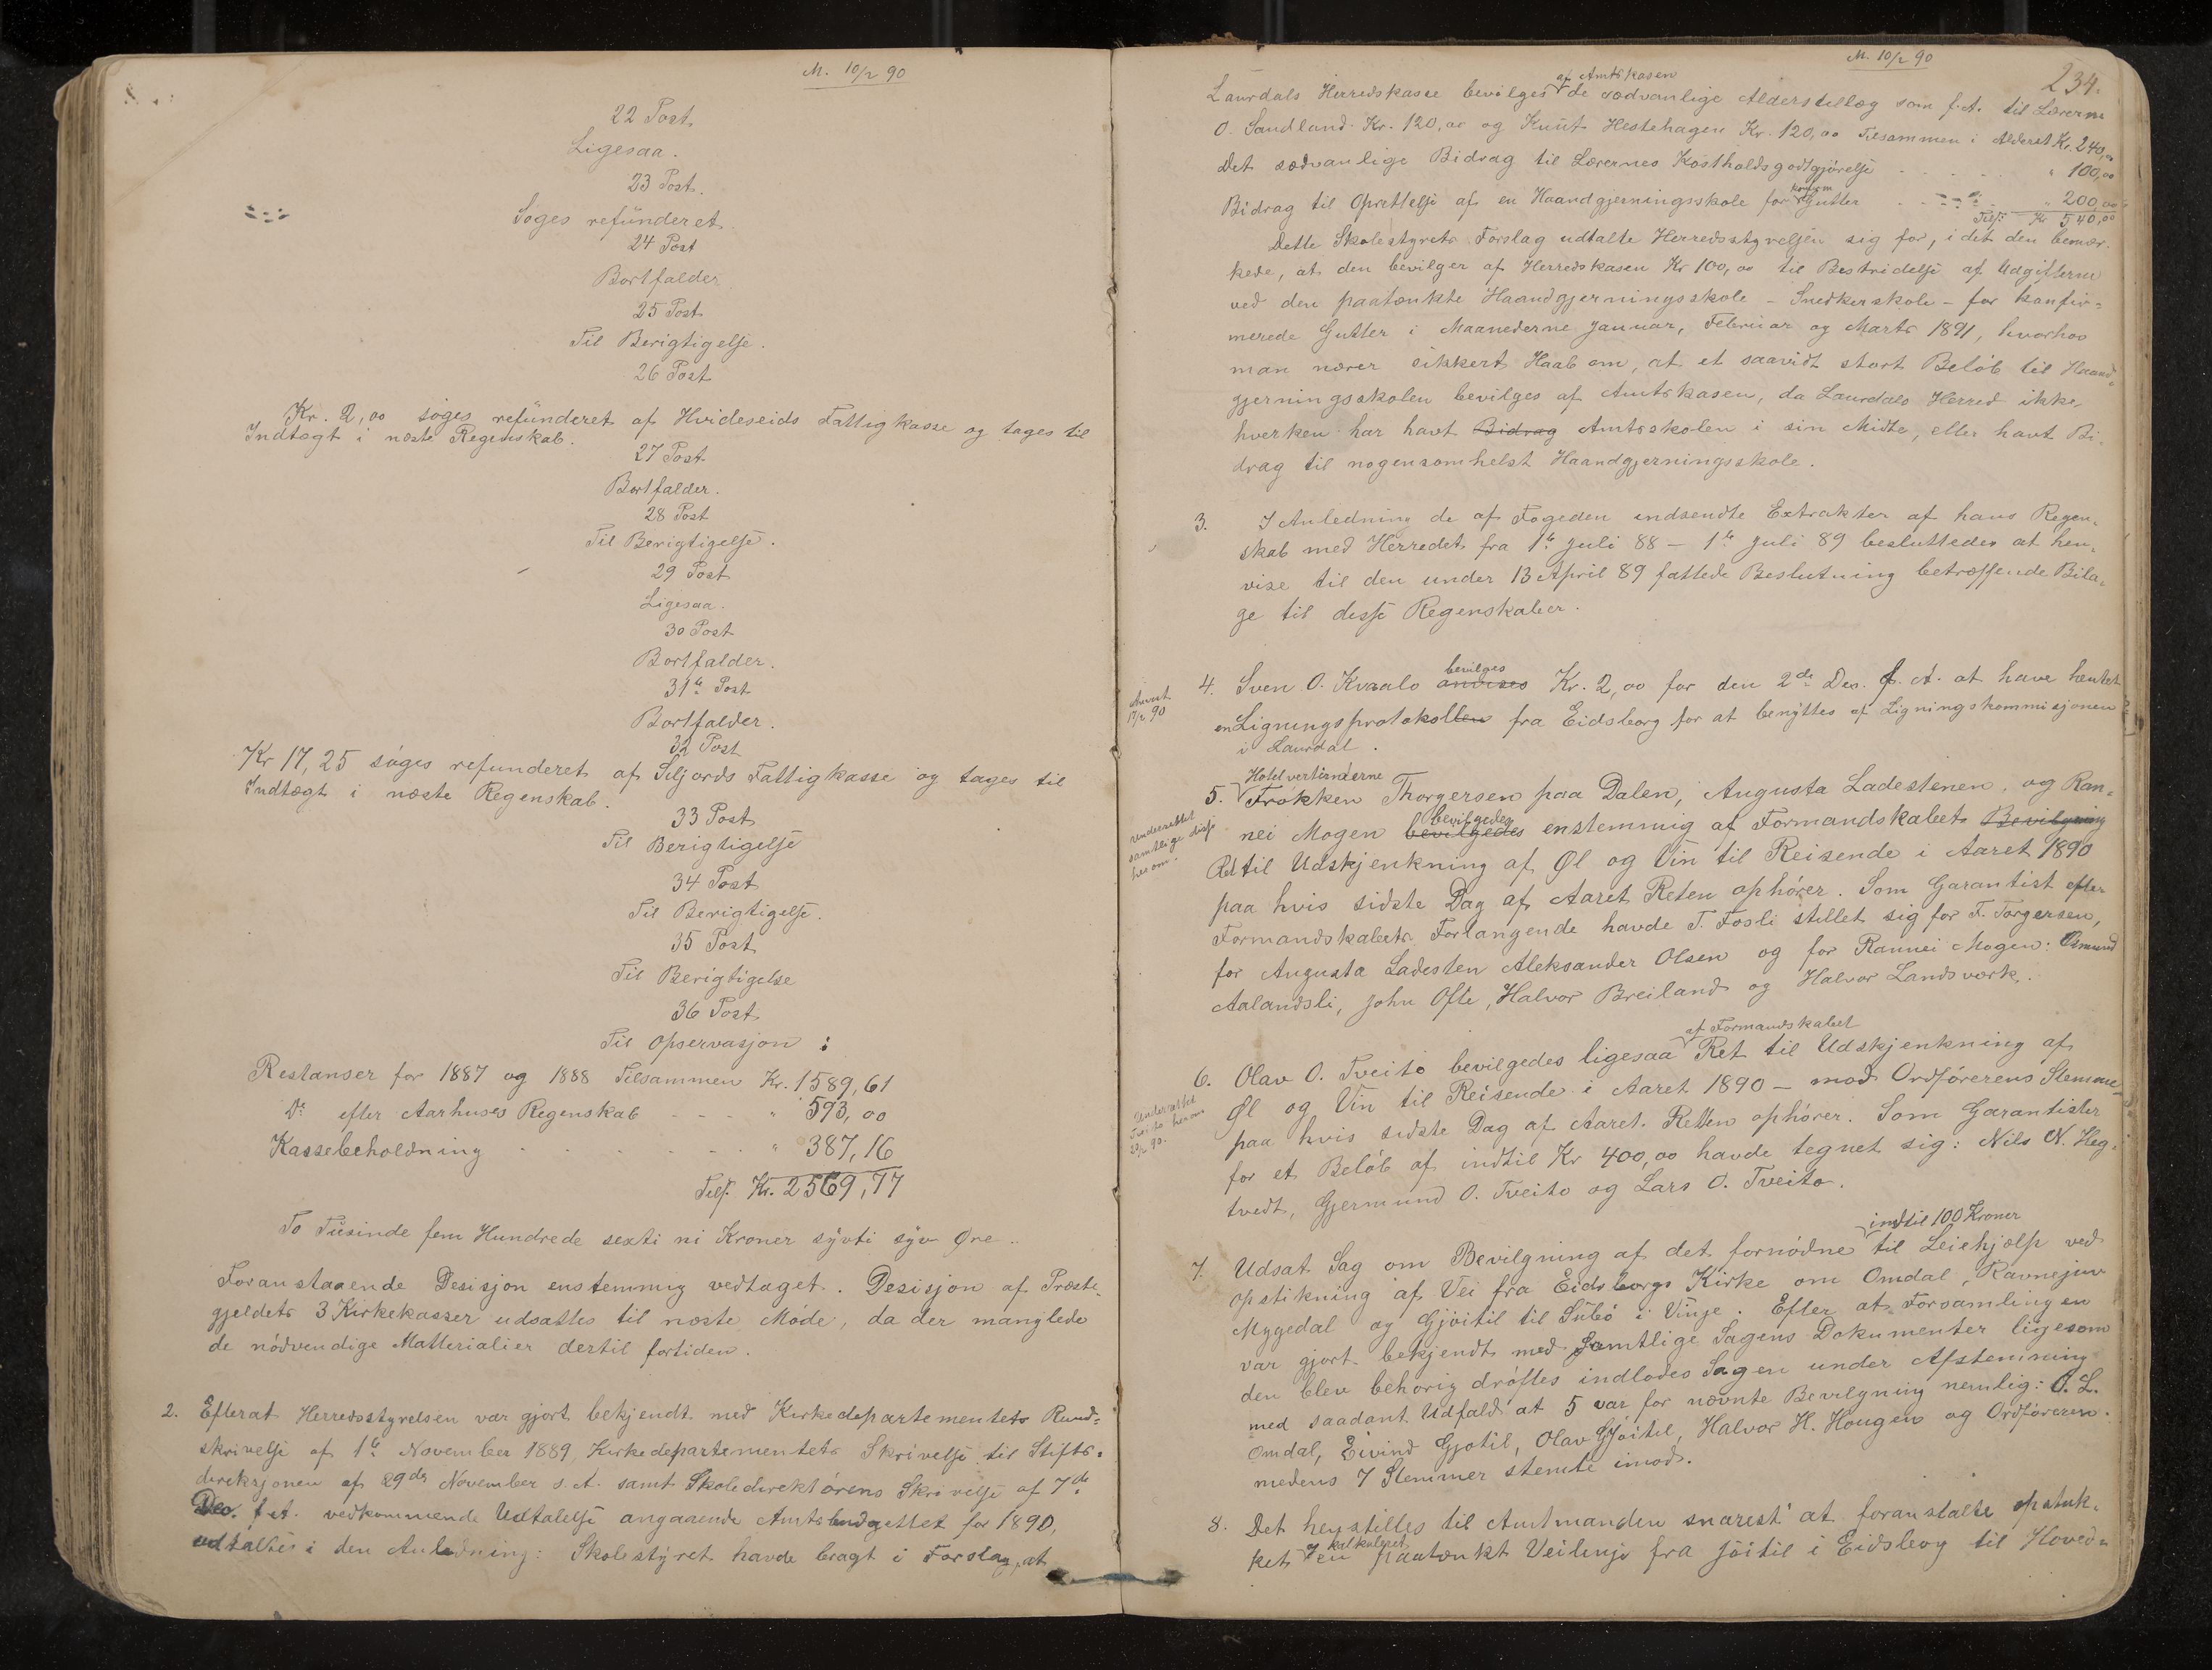 M. 10/2 90
22 Post
Ligesaa.
23 Post.
Søges refunderet
24 Post
Bortfalder
25 Post
Til Berigtigelse.
26 Post
Kr. 2,00 søges refunderet af Hvideseids Fattigkasse og tages til
Indtægt i næste Regnskab.
27 Post
Bortfalder.
28 Post
Til Berigtigelse.
29 Post
Ligesaa.
30 Post
Bortfalder.
31te Post
Bortfalder.
32 Post
Kr 17,25 søges refunderet af Siljords Fattigkasse og tages til
Indtægt i næste Regenskab.
33 Post
Til Berigtigelse
34 Post
Til Berigtigelse.
35 Post
Til Berigtigelse
36 Post
Til Opservasjon :
Restanser for 1887 og 1888 Tilsammen Kr. 1589,61
Do efter Aarhuses Regenskab - - - " 593,00
Kassebeholdning . . . . . . " 387,16
Tils. Kr. 2569,77
To Tusinde fem Hundrede sexti ni Kroner sytti syv Øre..
Foranstaaende Desisjon enstemmig vedtaget. Desisjon af Præste-
gjeldets 3 Kirkekasser udsattes til næste Møde, da der manglede
de nødvendige Matterialier dertil fortiden.
2. Efterat Herredsstyrelsen var gjort bekjendt med Kirkedepartementets Rund-
skrivelse af 1te November 1889, Kirkedepartementets Skrivelse til Stifts-
direksjonen af 29de November s. A. samt Skoledirektørens Skrivelse af 7de
Dec. f. A. vedkommende Udtalelse angaaende Amtsbudgettet for 1890,
udtaltes i den Anledning: Skolestyret havde bragt i Forslag, at
M. 10/2 90
234.
af Amtskasen
Laurdals Herredskasse bevilges de sædvanlige Alderstillæg som f. A. til Lærerne
O. Sandland Kr. 120,00 og Knut Hestehagen Kr. 120,00 Tilsammen i Alderst Kr. 240,00
Det sædvanlige Bidrag til Lærernes Kostholdsgodtgjørelse . . . . " 100,00
konfirm
Bidrag til Oprettelse af en Haandgjerningsskole for Gutter . . . . " 200,00
Tils: Kr 540,00
Dette Skolestyrets Forslag udtalte Herredsstyrelsen sig for, idet den bemær-
kede, at den bevilger af Herredskasen Kr 100,00 til Bestridelse af Udgifterne
ved den paatænkte Haandgjerningsskole - Snedkerskole - for konfir-
merede Gutter i Maanederne Januar, Februar og Marts 1891, hvorhos
man nærer sikkert Haab om, at et saavidt stort Beløb til Haand-
gjerningsskolen bevilges af Amtskasen, da Laurdals Herred ikke
hverken har havt Bidrag Amtsskolen i sin Midte, eller havt Bi-
drag til nogensomhelst Haandgjerningsskole.
3. I Anledning de af Fogeden indsendte Extrakter af hans Regen-
skab med Herredet fra 1te Juli 88 - 1te Juli 89 besluttedes at hen-
vise til den under 13 April 89 fattede Beslutning betræffende Bila-
ge til disse Regenskaber.
Anvist
17/2 90
bevilges
4. Sven O. Kvaalo anvises Kr. 2,00 for den 2de Dec. f. A. at have hentet
en Ligningsprotokollen fra Eidsborg for at benyttes af Ligningskommisjonen
i Laurdal.
underrettet
samtlige disse
herom.
Hotelvertinderne
5. Frøkken Thorgersen paa Dalen, Augusta Ladestenen, og Ran-
bevilgedes
nei Mogen bevilgedes enstemmig af Formandskabet Bevilgning
Ret til Udskjenkning af Øl og Vin til Reisende i Aaret 1890
paa hvis sidste Dag af Aaret Reten ophører. Som Garantist efter
Formandskabets Forlangende havde T. Fosli stillet sig for F. Torgersen,
for Augusta Ladesten Aleksander Olsen og for Rannei Mogen: Osmund
Aalandsli, John Ofte, Halvor Breiland og Halvor Landsværk.
Underrettet
Tveito herom
20/2 90.
af Formandskabet
6. Olav O. Tveito bevilgedes ligesaa Ret til Udskjenkning af
Øl og Vin til Reisende i Aaret 1890 - mod Ordførerens Stemme -
paa hvis sidste Dag af Aaret Retten ophører. Som Garantister
for et Beløb af indtil Kr 400,00 havde tegnet sig: Nils N. Heg-
tvedt, Gjermund O. Tveito og Lars O. Tveito.
indtil 100 Kroner
7. Udsat Sag om Bevilgning af det fornødne til Leiehjælp ved
opstikning af Vei fra Eidsborgs Kirke om Omdal, Ravnejuv
Mygedal og Gjøitil til Subø i Vinje. Efter at Forsamlingen
var gjort bekjendt med samtlige Sagens Dokumenter ligesom
den blev behørig drøftes indlodes Sagen under Afstemning
med saadant Udfald at 5 var for nævnte Bevilgning nemlig: O. L.
Omdal, Eivind Gjøtil, Olav Gjøitil, Halvor H. Hougen og Ordføreren.
medens 7 Stemmer stemte imod.
8. Det henstilles til Amtmanden snarest at foranstalte opstuk-
kalkuleret
ket en paatænkt Veilinje fra Jøitil i Eidsborg til Hoved-